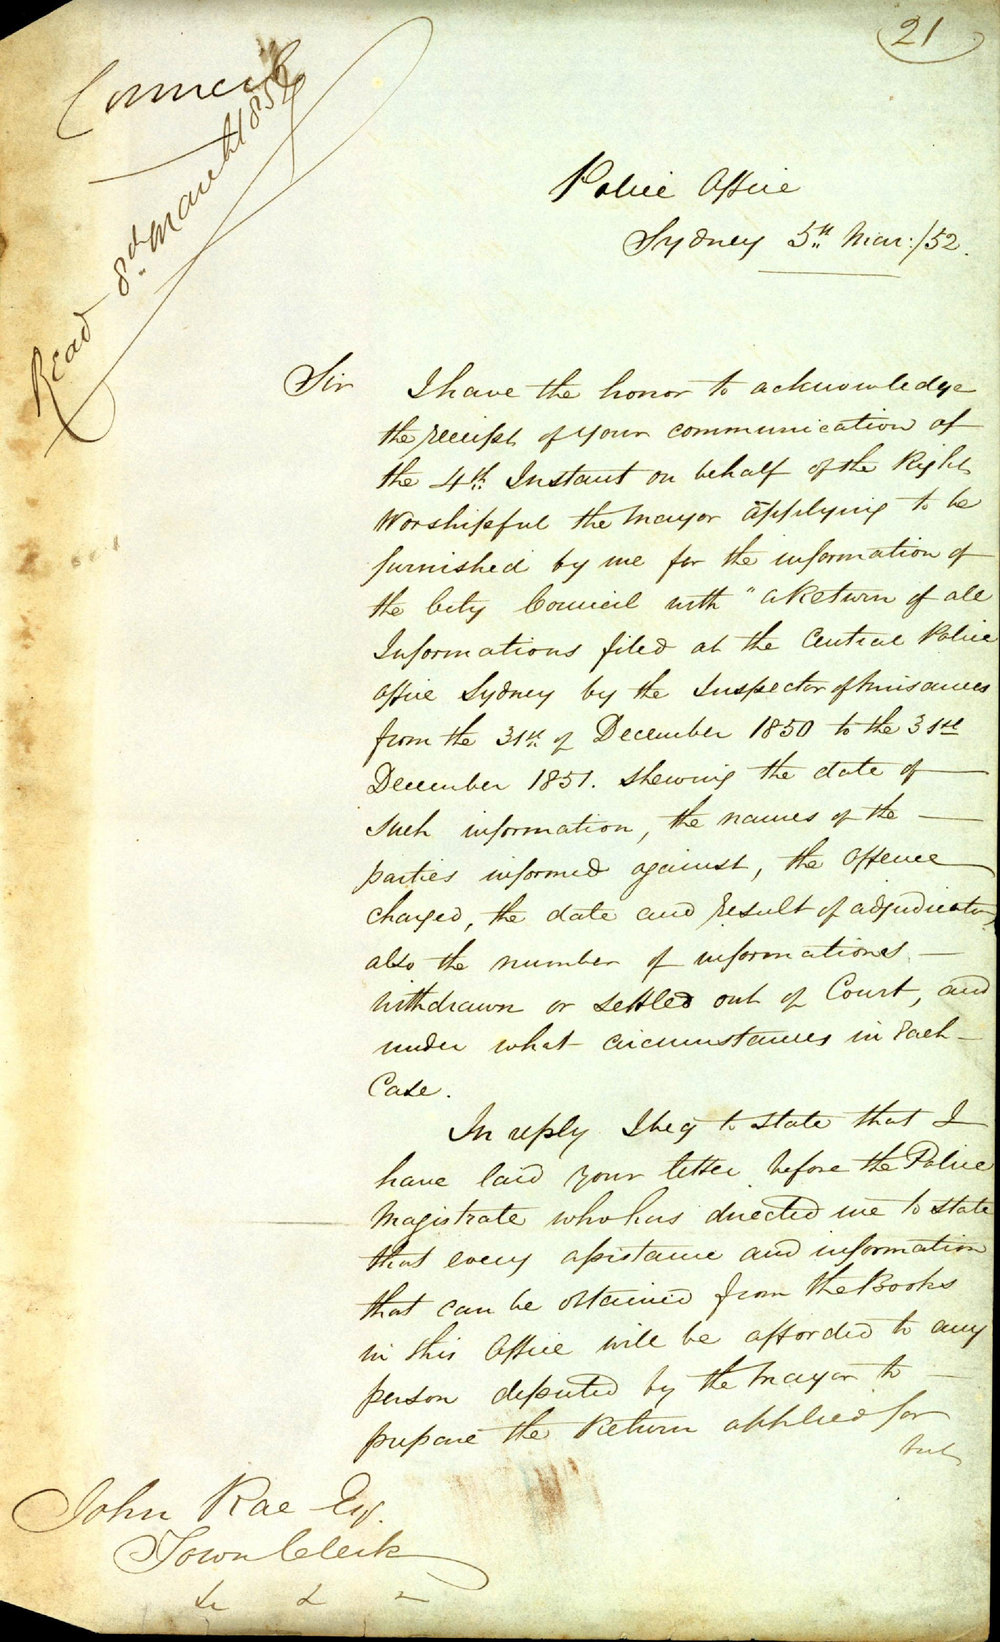 21
Council
Read 8th March 1852
Police Office
Sydney 5th Mar:/52.
Sir I have the honor to acknowledge
the receipt of your communication of
the 4th Instant on behalf of the Right
Worshipful the Mayor applying to be
furnished by me for the information of
the City Council with "a Return of all
Informations filed at the Central Police
Office Sydney by the Inspector of Nuisances
from the 31st of December 1850 to the 31st
December 1851. shewing the date of
such information, the names of the
parties informed against, the offence
charged, the date and result of adjudication,
also the number of informations
withdrawn or settled out of Court, and
under what circumstances in each
Case.
In reply I beg to state that I
have laid your letter before the Police
Magistrate who has directed me to state
that every assistance and information
that can be obtained from the Books
in this Office will be afforded to any
person deputed by the Mayor to
prepare the Return applied for
but
John Rae Esq.
Town Clerk
&c &